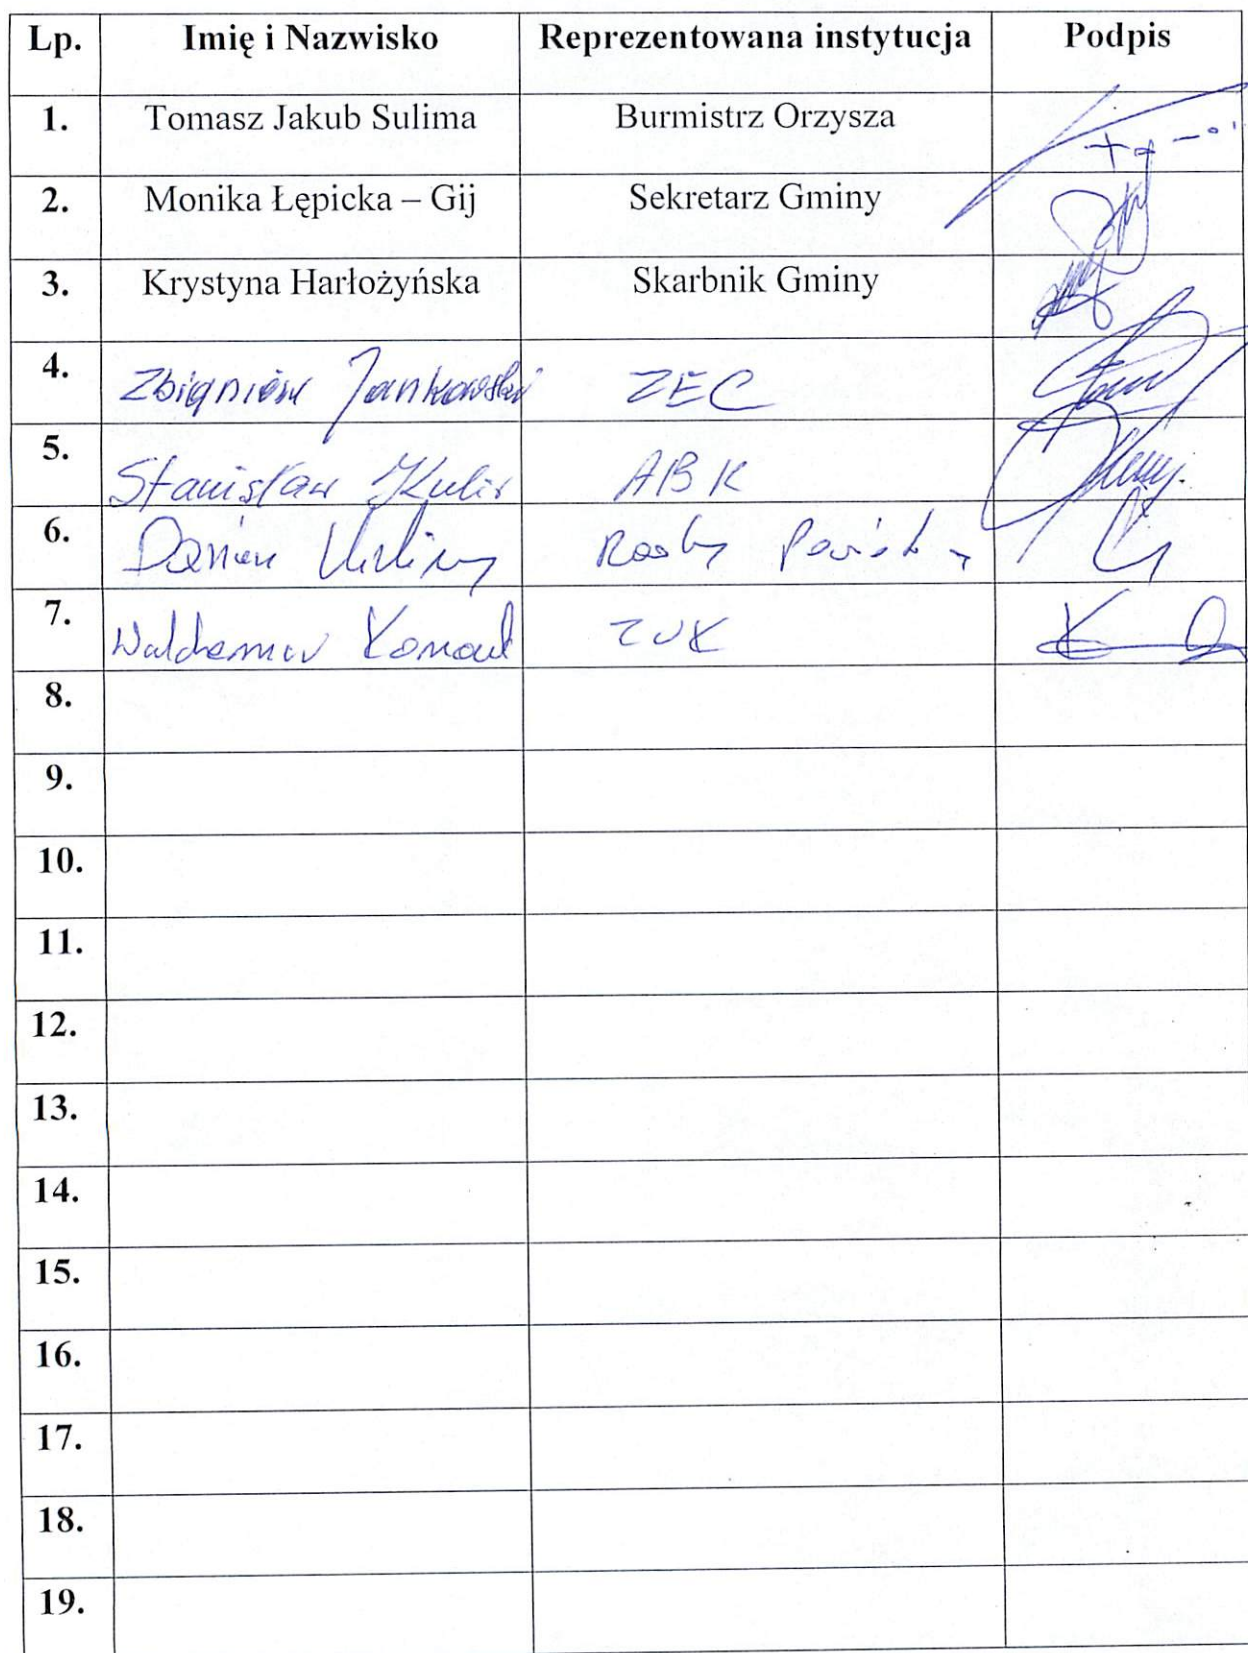 Lp. Imię i Nazwisko Reprezentowana instytucja Podpis
1. Tomasz Jakub Sulima Burmistrz Orzysza
2. Monika Łępicka – Gij Sekretarz Gminy
3. Krystyna Harłożyńska Skarbnik Gminy
4. Zbigniew Jankowski ZEC
5. Stanisław ABK
6.
7. Waldemar ZUK
8.
9.
10.
11.
12.
13.
14.
15.
16.
17.
18.
19.